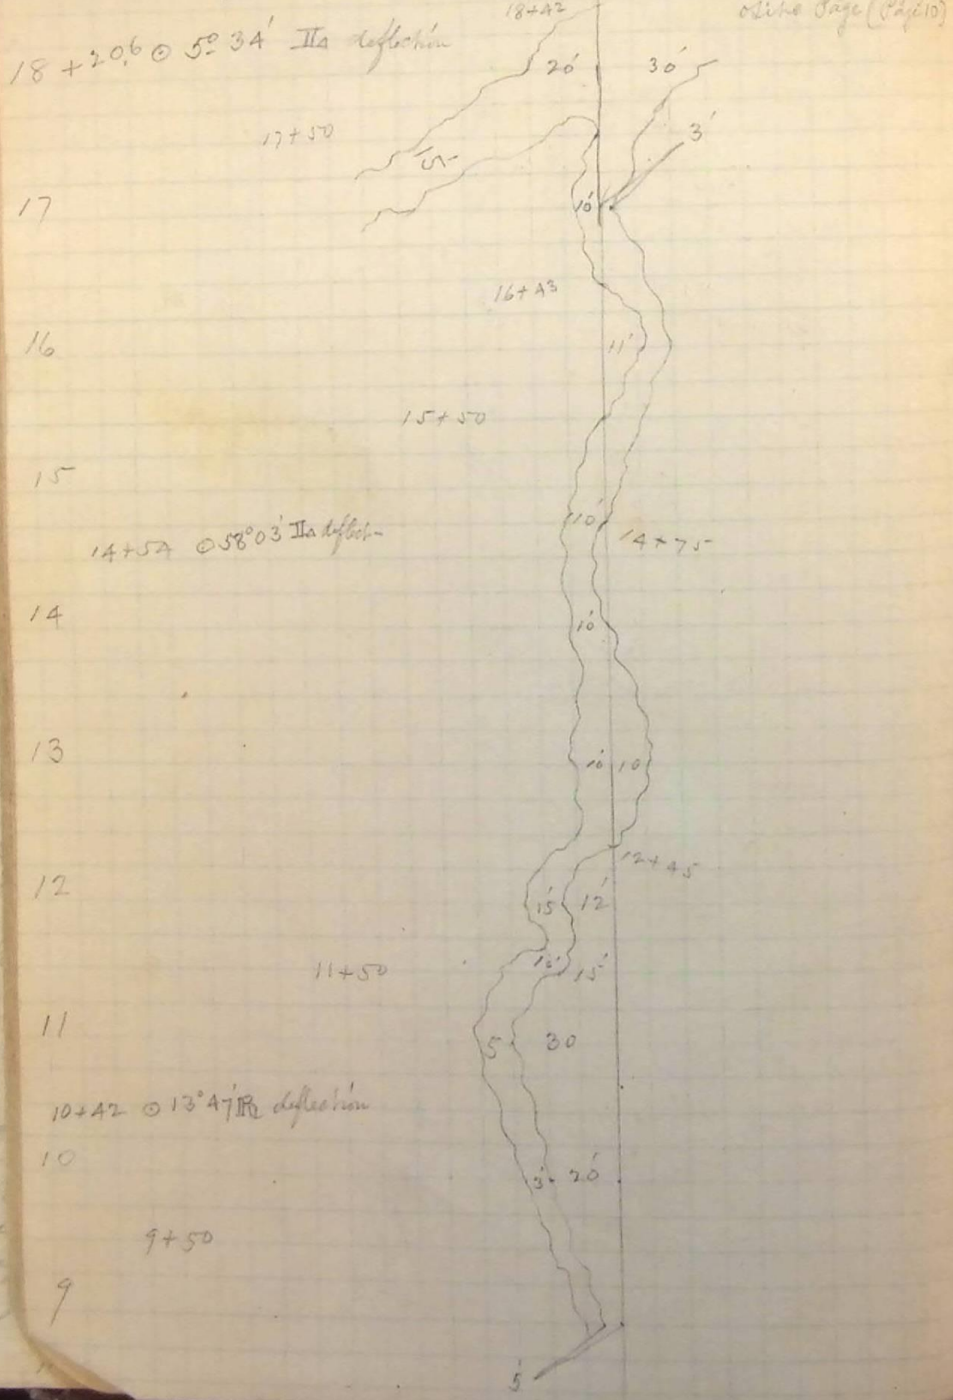 18+42
Page (Page 10)
18 + 20.6 ⊙ 5° 34' deflection
20' 30'
17+50 3'
5
17 10'
16+43
16 11'
15+50
15
10'
14+54 ⊙ 58°03' deflect-
14+75
14 10'
13 10 10
12+45
12 15' 12'
11+50 15'
11 5 30
10+42 ⊙ 13°47' deflection
10 3' 20'
9+50
9
5'